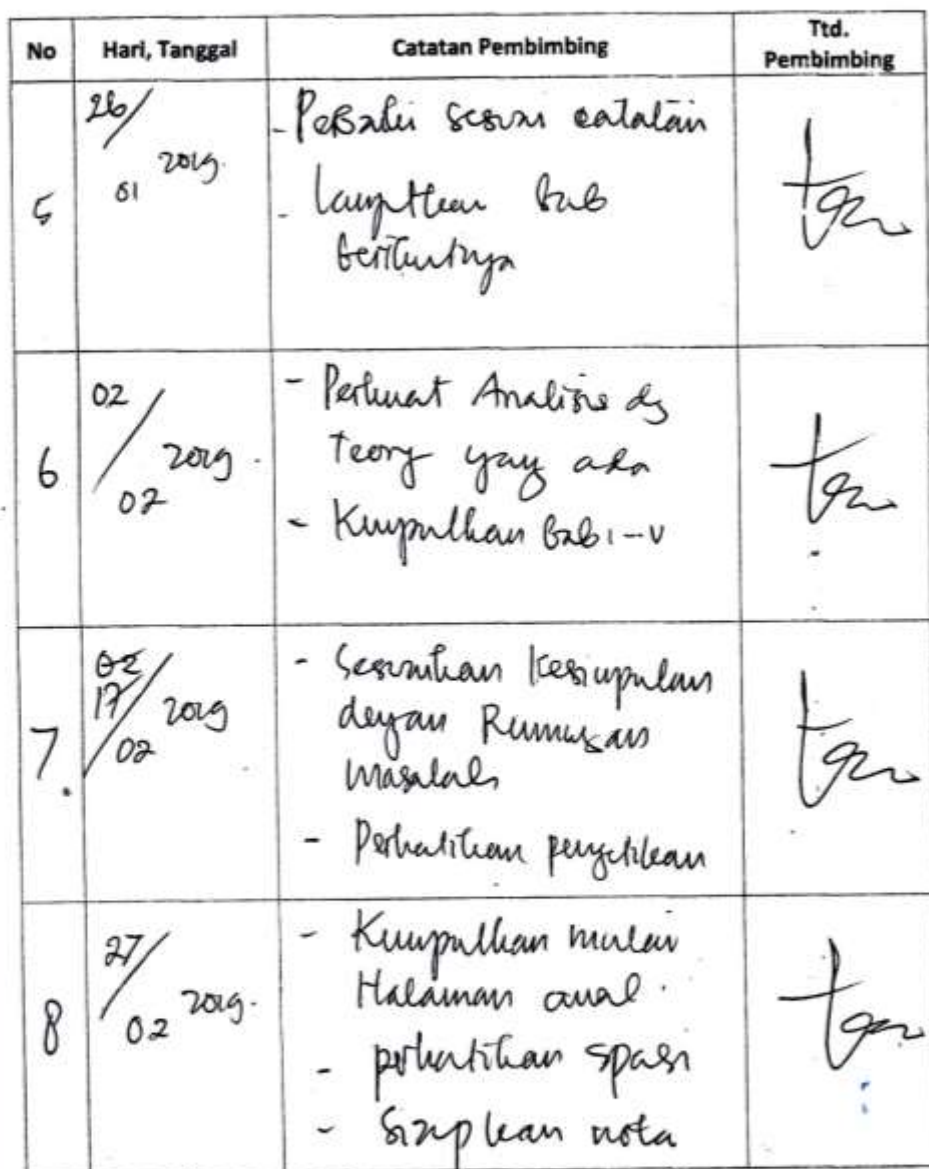 No Hari, Tanggal Catatan Pembimbing Ttd. Pembimbing
5 26/01 2019. - Perbaiki sesuai catatan
- Lanjutkan bab
berikutnya
6 02/02 2019. - Perkuat Analisis dg
teory yang ada
- Kumpulkan bab I--V
7. 02 17/02 2019 - Sesuaikan Kesimpulan
dengan Rumusan
masalah
- Perhatikan pengetikan
8 27/02 2019. - Kumpulkan mulai
Halaman awal.
- perhatikan spasi
- Siapkan nota